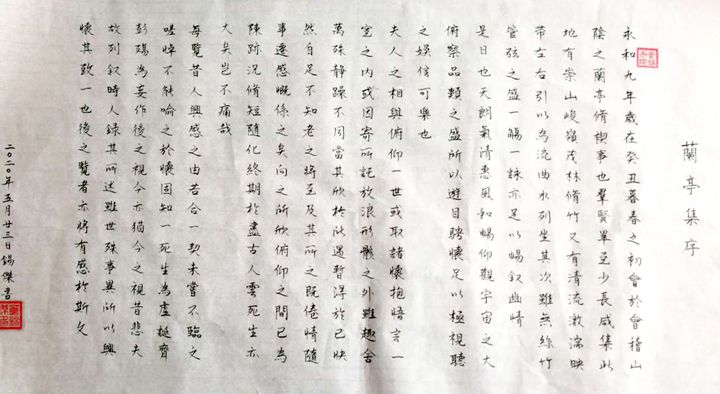 蘭亭集序
永和九年歲在癸丑暮春之初會於會稽山
陰之蘭亭脩禊事也羣賢畢至少長咸集此
地有崇山峻嶺茂林脩竹又有清流激湍映
帶左右引以為流曲水列坐其次雖無絲竹
管弦之盛一觴一詠亦足以暢叙幽情
是日也天朗氣清惠風和暢仰觀宇宙之大
俯察品類之盛所以遊目騁懷足以極視聽
之娛信可樂也
夫人之相與俯仰一世或取諸懷抱悟言一
室之內或因寄所託放浪形骸之外雖趣舍
萬殊靜躁不同當其欣於所遇暫得於己快
然自足不知老之將至及其所之既倦情隨
事遷感慨係之矣向之所欣俯仰之間已為
陳跡況脩短隨化終期於盡古人雲死生亦
大矣豈不痛哉
每覽昔人興感之由若合一契未嘗不臨文
嗟悼不能喻之於懷固知一死生為虛誕齊
彭殤為妄作後之視今亦猶今之視昔悲夫
故列叙時人錄其所述雖世殊事異所以興
懷其致一也後之覽者亦將有感於斯文
二〇二〇年五月廿三日錫傑書